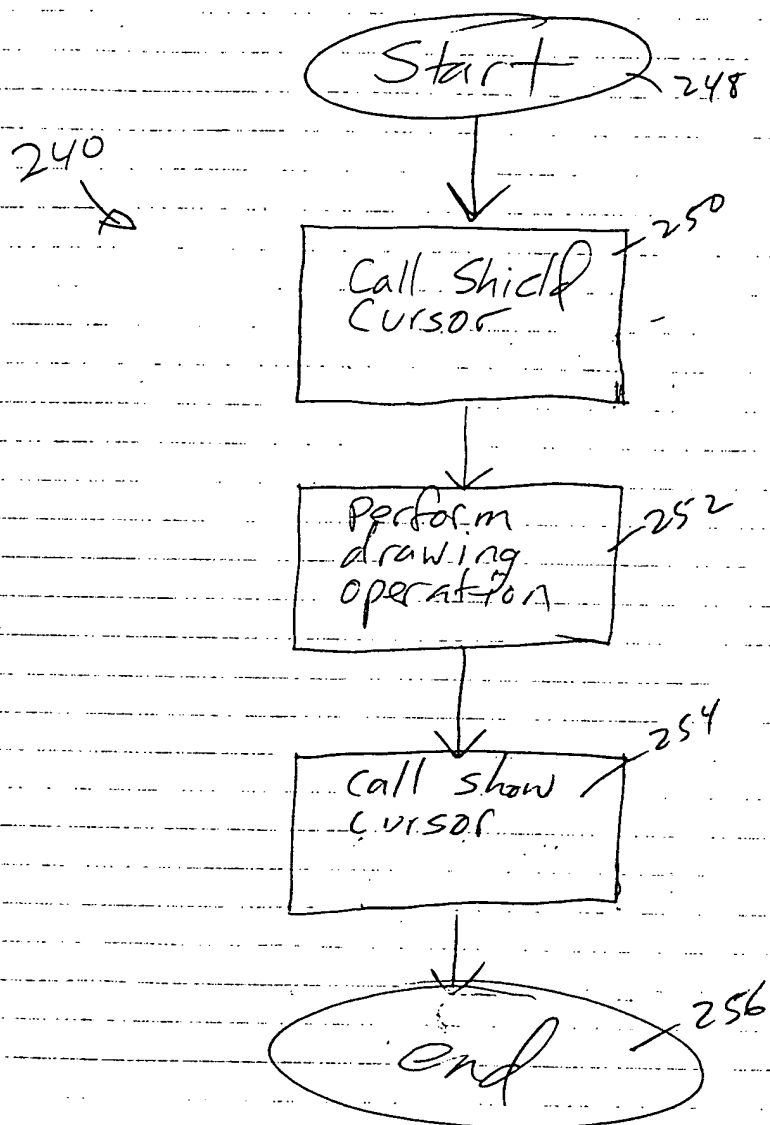 Start
248
240
250
Call Shield
Cursor
Perform
drawing
operation
252
254
Call show
cursor
end
256